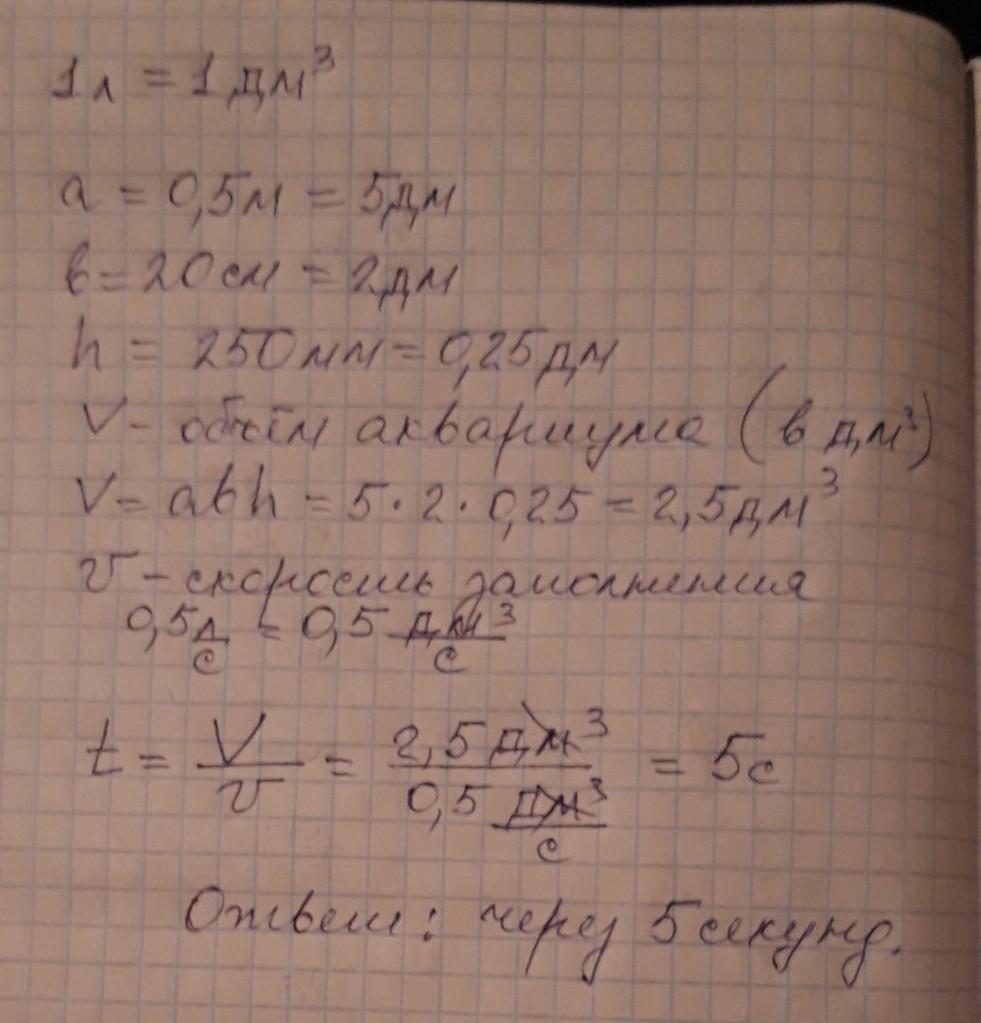 1л = 1 дм³
a = 0,5м = 5дм
в = 20см = 2дм
h = 250мм = 0,25дм
V - объём аквариума (в дм³)
V = abh = 5 · 2 · 0,25 = 2,5дм³
v - скорость заполнения
0,5л/с = 0,5 дм³/с
t = V/v = 2,5 дм³ / 0,5 дм³/с = 5с
Ответ: через 5 секунд.